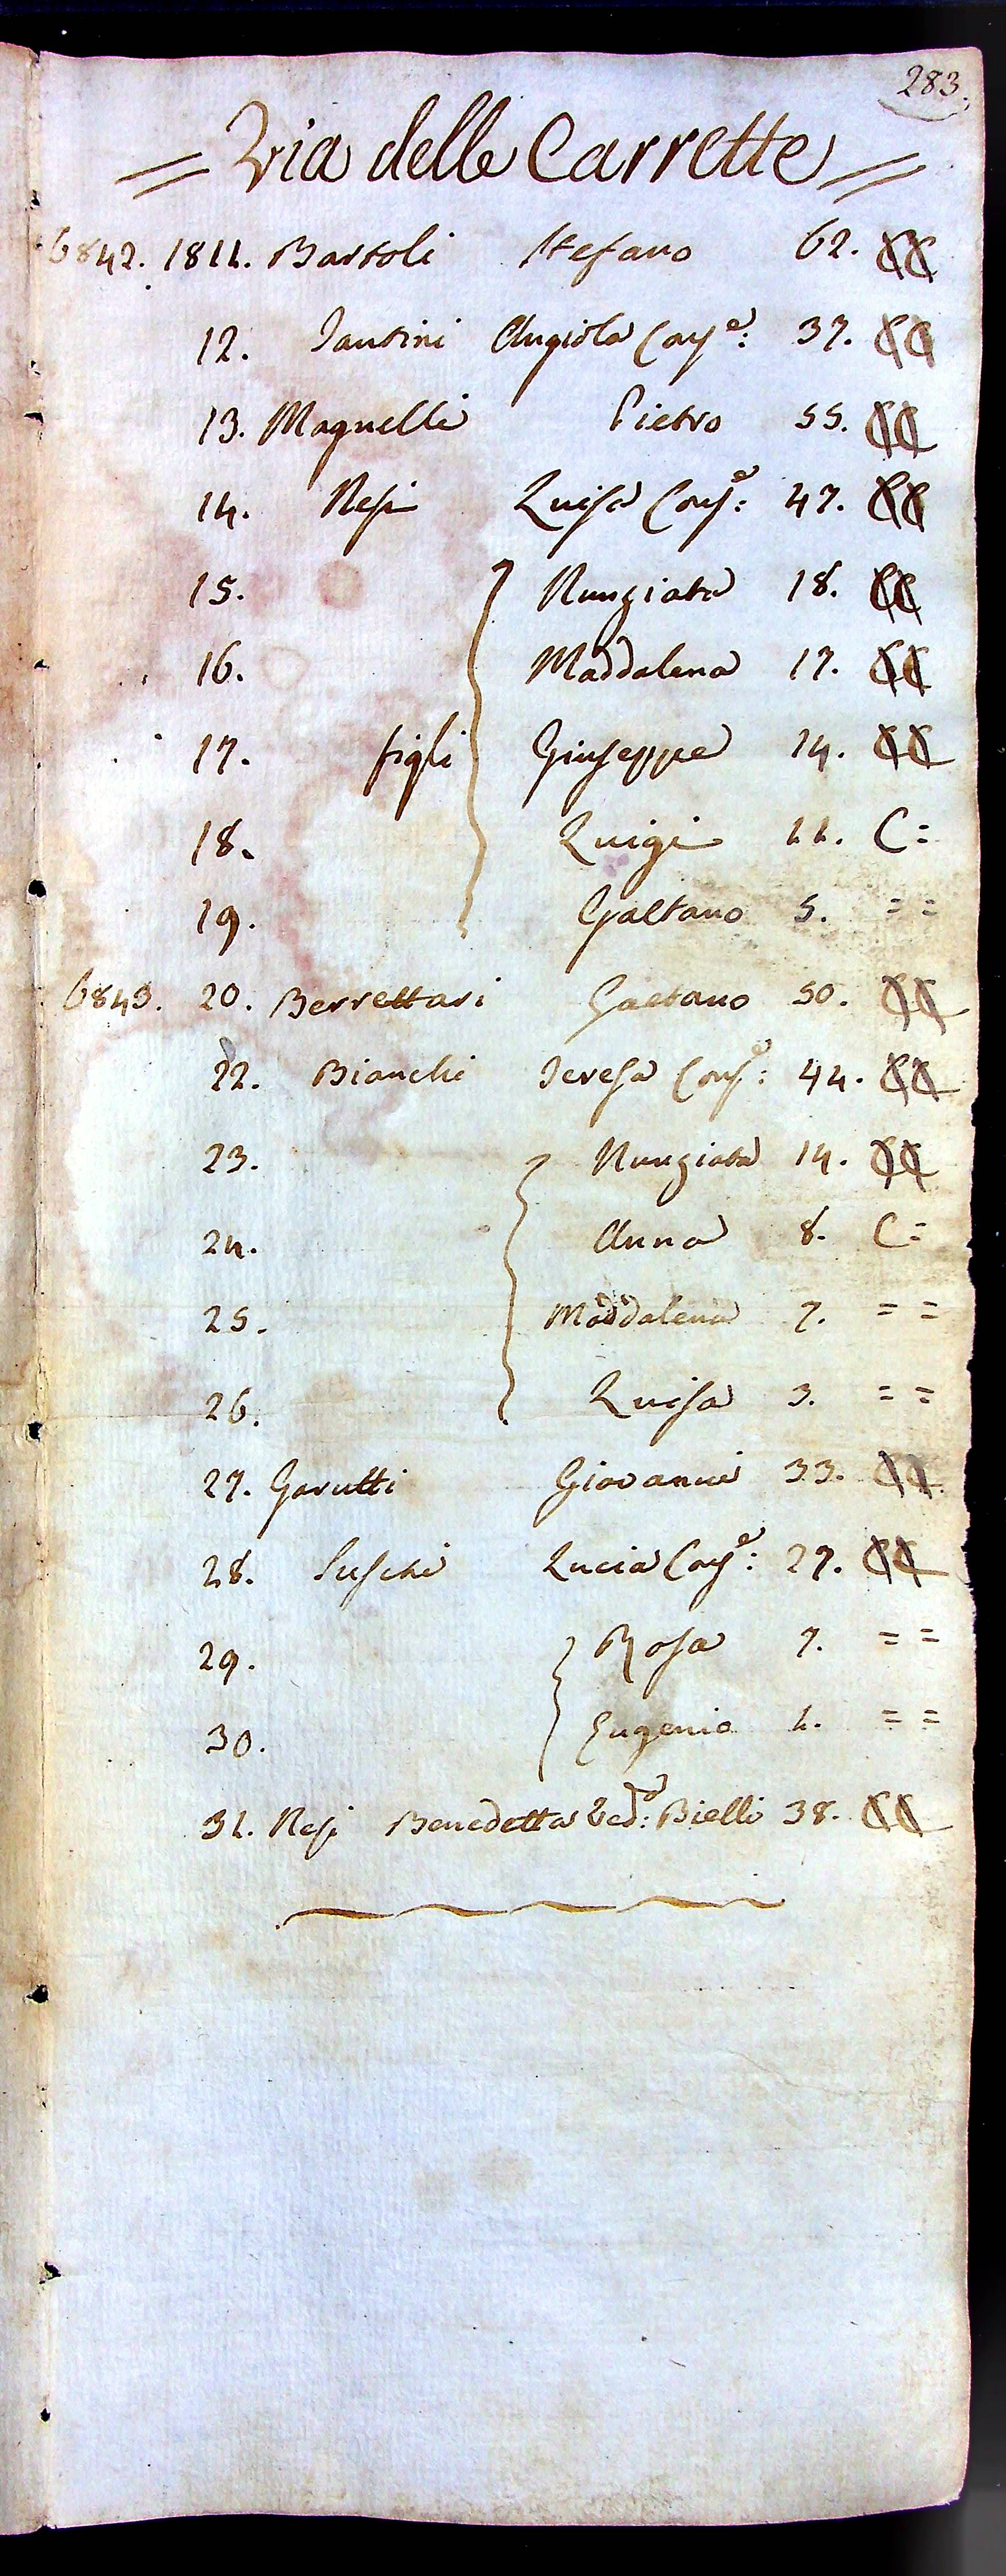 283.
= Via delle Carrette =
6842. 1811. Bartoli Stefano 62. CC
12. Santini Angiola Conj.e: 37. CC
13. Magnelli Pietro 55. CC
14. Nesi Luisa Conj.e: 47. CC
15. Nunziata 18. CC
16. Maddalena 17. CC
17. figli Giuseppe 14. CC
18. Luigi 11. C=
19. Gaetano 5. = =
6843. 20. Berrettari Gaetano 50. CC
22. Bianchi Teresa Conj.e: 44. CC
23. Nunziata 14. CC
24. Anna 8. C=
25. Maddalena 7. = =
26. Luisa 3. = =
27. Garutti Giovanni 33. CC
28. Suschi Lucia Conj.e: 27. CC
29. Rosa 7. = =
30. Eugenio 1. = =
31. Nesi Benedetta Ved.a: Bielli 38. CC